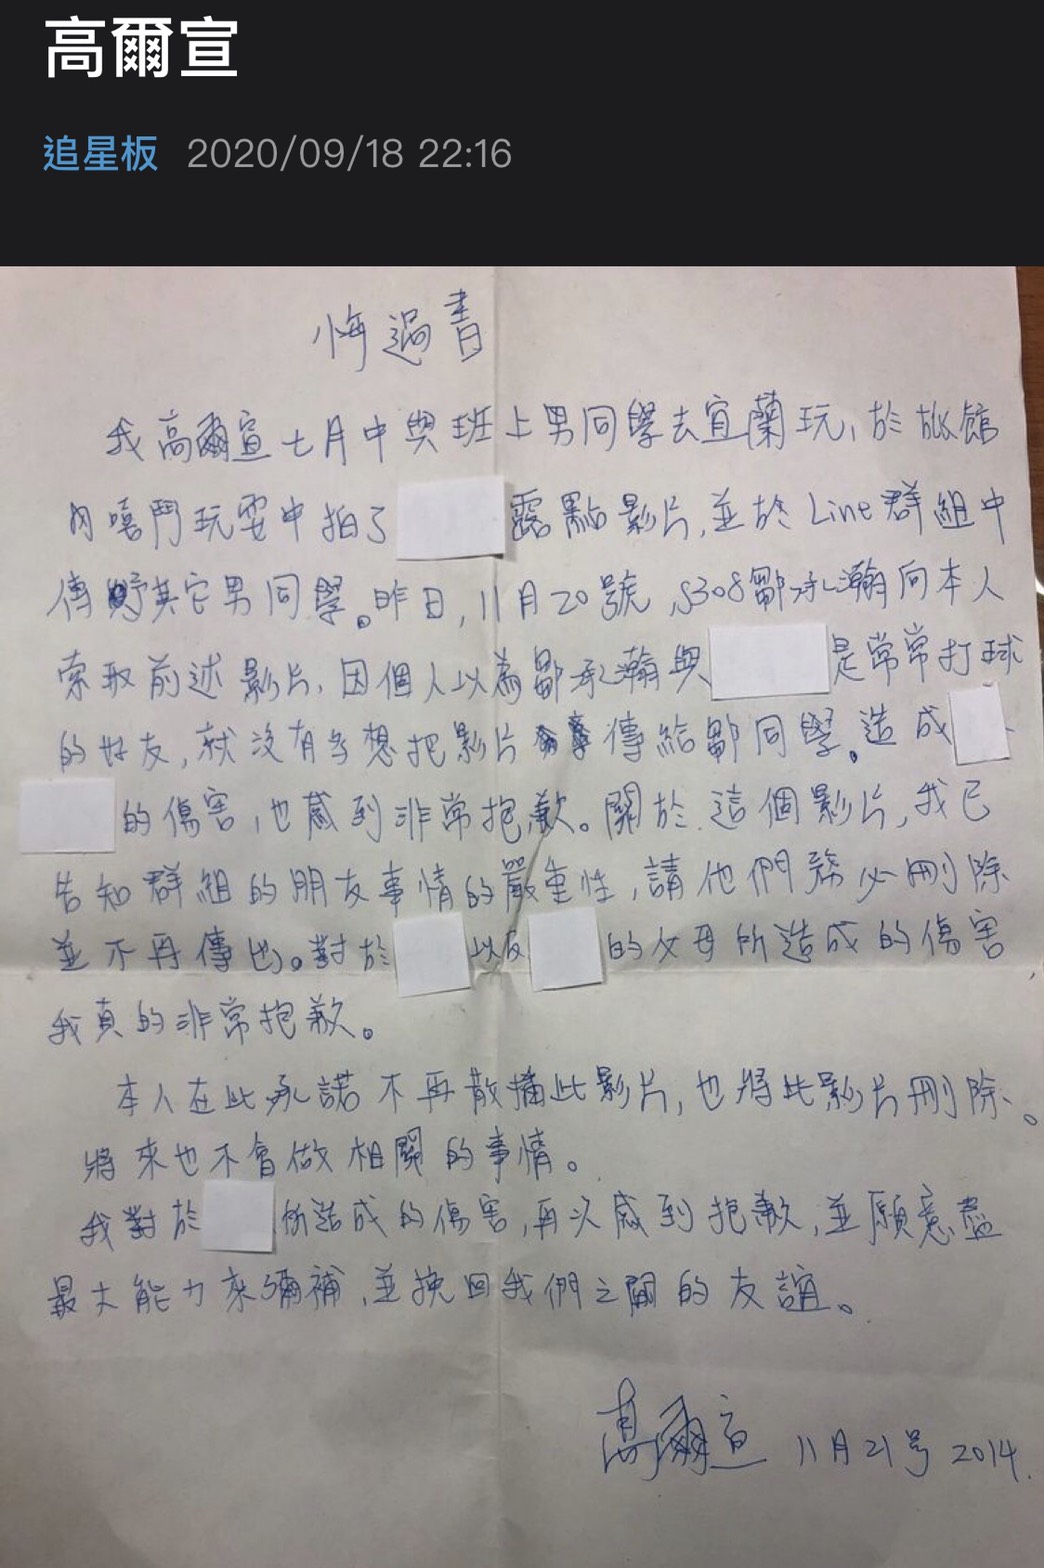 高爾宣
追星板 2020/09/18 22:16
悔過書
我高爾宣七月中與班上男同學去宜蘭玩,於旅館
內嘻鬥玩耍中拍了 露點影片,並於Line群組中
傳 其它男同學。昨日,11月20號,S308鄒承瀚向本人
索取前述影片,因個人以為鄒承瀚與 是常常打球
的好友,就沒有多想把影片 傳給鄒同學。造成
的傷害,也感到非常抱歉。關於這個影片,我已
告知群組的朋友事情的嚴重性,請他們務必刪除
並不再傳出。對於 以及 的父母所造成的傷害,
我真的非常抱歉。
本人在此承諾不再散播此影片,也將此影片刪除。
將來也不會做相關的事情。
我對於 所造成的傷害,再次感到抱歉,並願意盡
最大能力來彌補,並挽回我們之間的友誼。
高爾宣 11月21号 2014.